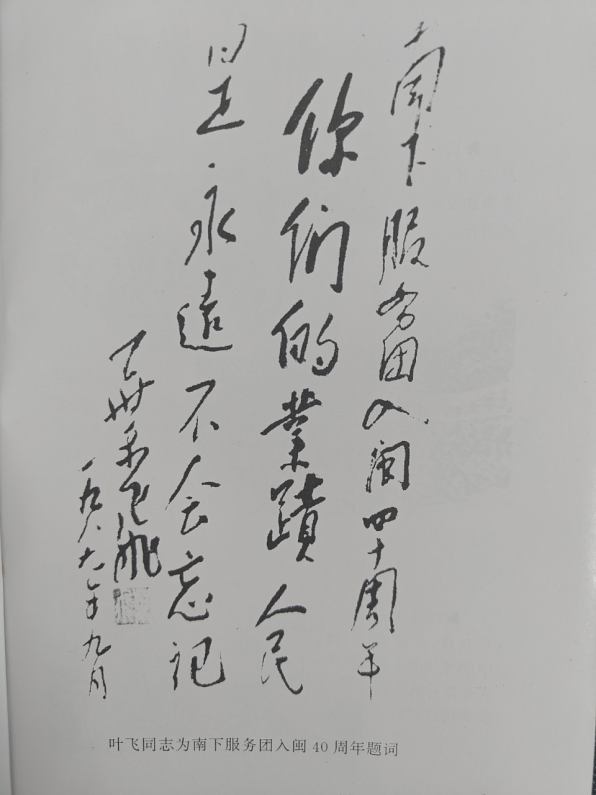 南下服务团入闽四十周年
你们的業蹟人民
是永遠不会忘记
葉飛
一九八九年九月
叶飞同志为南下服务团入闽40周年题词